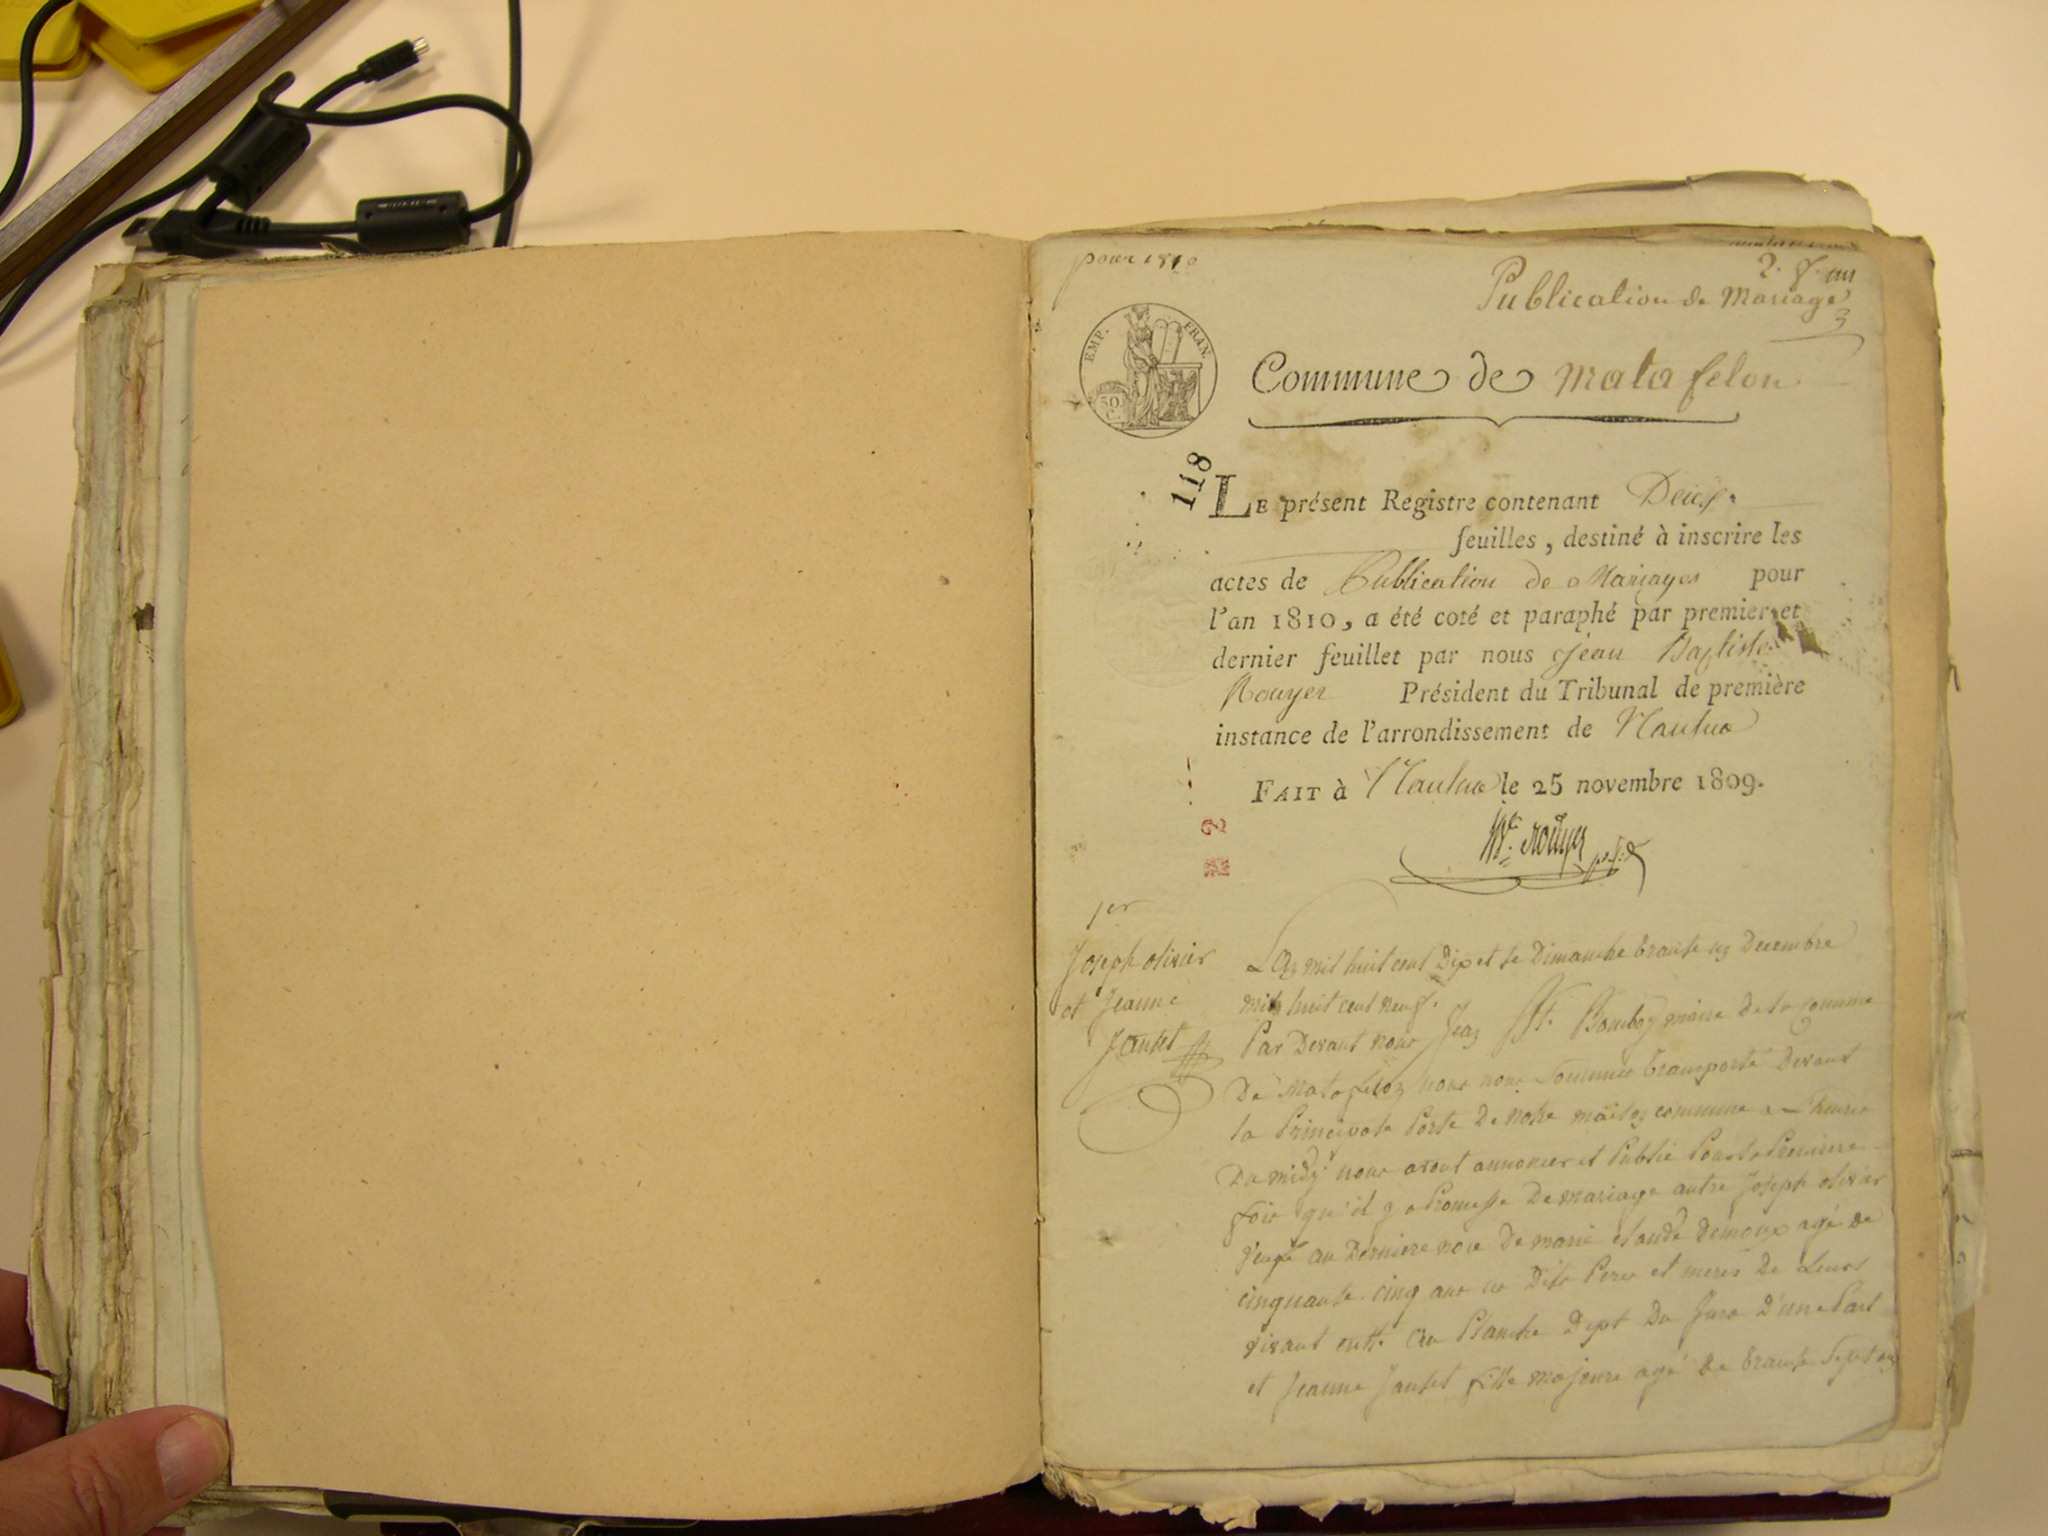 pour 1810
2. f. un
Publication de Mariage
3
EMP. FRAN.
50
C.
Commune de Matafelon
118
LE présent Registre contenant Deux
feuilles, destiné à inscrire les
actes de Publication de Mariages pour
l'an 1810, a été coté et paraphé par premier et
dernier feuillet par nous Jean Baptiste
Rouyer Président du Tribunal de première
instance de l'arrondissement de Nantua
FAIT à Nantua le 25 novembre 1809.
Rouyer
2
1er
Joseph olivier
et Jeanne
Jantet
L'an mil huit cent Dix et le Dimanche trante un Decembre
mil huit cent neuf.
Par Devant nous Jean Bte. maire de la commune
De Matafelon nous nous sommes transporté Devant
la Principale Porte De notre maison commune a L'heure
Du midy nous avont annoncer et Publié Pour la Premiere
fois qu'il y a Promesse De mariage autre Joseph olivier
veufe au Derniere nose De marie claude demoux agé de
cinquante cinq ans Dits Peres et meres De Leurs
vivant Planche Dept Du Jura D'une Part
et Jeanne Jantet fille majeure agé de trante Sept ans